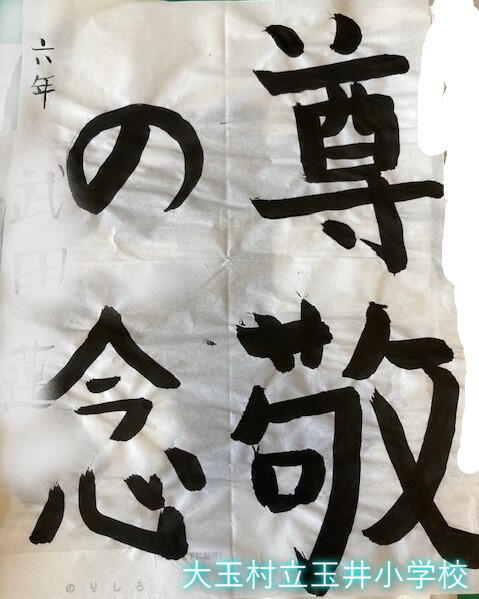 尊敬
の念
六年
のりしろ
大玉村立玉井小学校